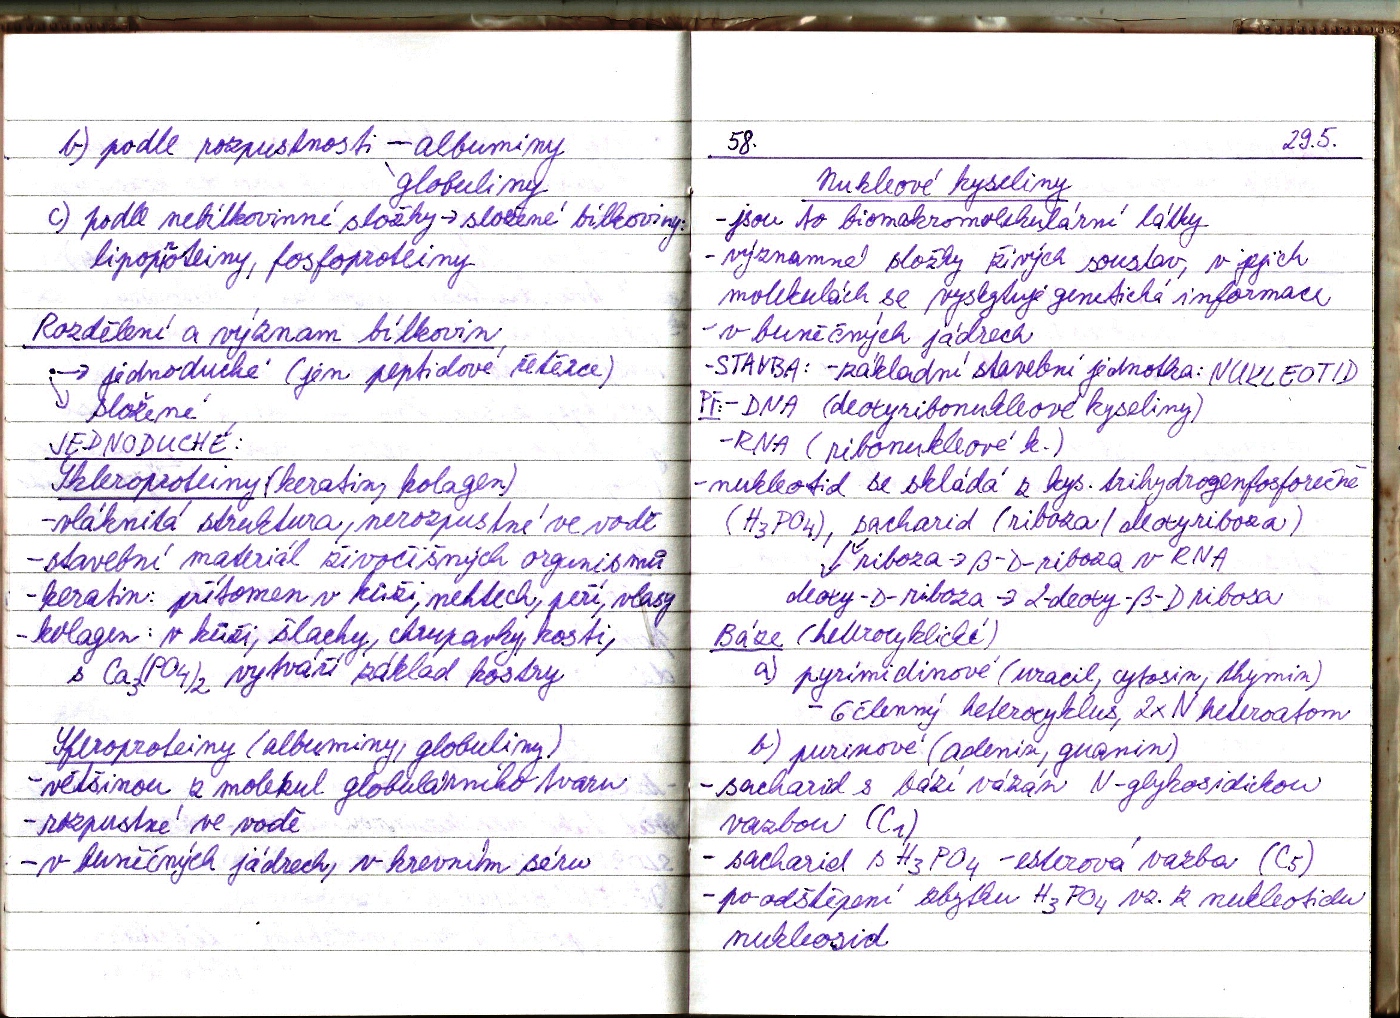 b) podle rozpustnosti – albuminy
globuliny
c) podle nebílkovinné složky → složené bílkoviny:
lipoproteiny, fosfoproteiny
Rozdělení a význam bílkovin
→ jednoduché (jen peptidové řetězce)
složené
JEDNODUCHÉ:
Skleroproteiny (keratin, kolagen)
- vláknitá struktura, nerozpustné ve vodě
- stavební materiál živočišných organismů
- keratin: přítomen v kůži, nehtech, peří, vlasy
- kolagen: v kůži, šlachy, chrupavky, kosti,
s Ca3(PO4)2 vytváří základ kostry
Sferoproteiny (albuminy, globuliny)
- většinou z molekul globulárního tvaru
- rozpustné ve vodě
- v buněčných jádrech, v krevním séru
58. 29.5.
Nukleové kyseliny
- jsou to biomakromolekulární látky
- významné složky živých soustav, v jejich
molekulách se vyskytuje genetická informace
- v buněčných jádrech
- STAVBA: - základní stavební jednotka: NUKLEOTID
Př: - DNA (deoxyribonukleové kyseliny)
- RNA (ribonukleové k.)
- nukleotid se skládá z kys. trihydrogenfosforečné
(H3PO4), sacharid (riboza / deoxyriboza)
riboza → β-D-riboza v RNA
deoxy-D-riboza → 2-deoxy-β-D ribosa
Báze (heterocyklické)
a) pyrimidinové (uracil, cytosin, thymin)
- 6 členný heterocyklus, 2x N heteroatom
b) purinové (adenin, guanin)
- sacharid s bází vázán N-glykosidickou
vazbou (C1)
- sacharid s H3PO4 - esterová vazba (C5)
- po odštěpení zbytku H3PO4 vz. z nukleotidu
nukleosid